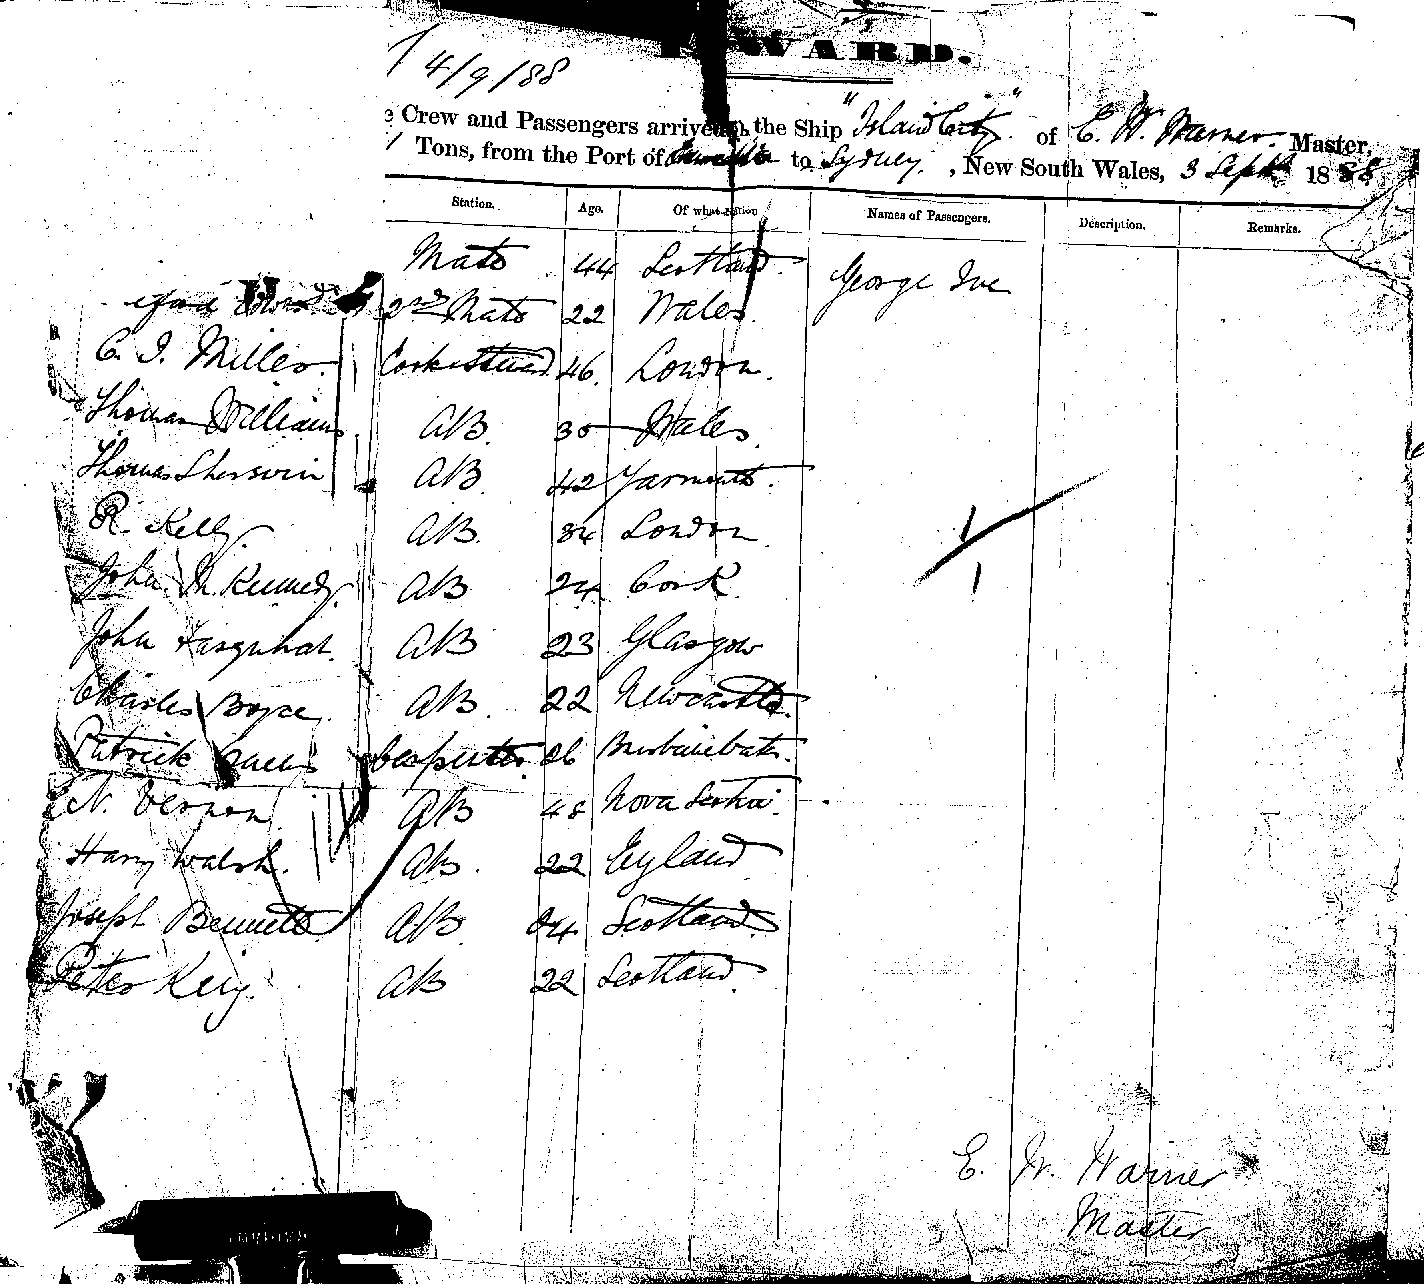 INWARD.
4/9/88
Crew and Passengers arrived in the Ship "Island City" of E. W. Warner Master,
Tons, from the Port of to Sydney, New South Wales, 3 Septr 1888
Station. Age. Of what nation Names of Passengers. Description. Remarks.
Mate 44 Scotland George Ive
2nd Mate 22 Wales
C. I. Miller Cook & Steward 46 London.
Thomas Williams AB 30 Wales
Thomas Sherwin AB 42 Yarmouth
R. Kelly AB 34 London
John M. Kennedy AB 24 Cork
John Farquhar AB 23 Glasgow
Charles Boyce AB 22 Newcastle
Patrick Carpenter 26
N. Vernon AB 48 Nova Scotia
Harry Walsh. AB 22 England
Joseph Bennett AB 24 Scotland
Peter Keig AB 22 Scotland
E. W. Warner
Master